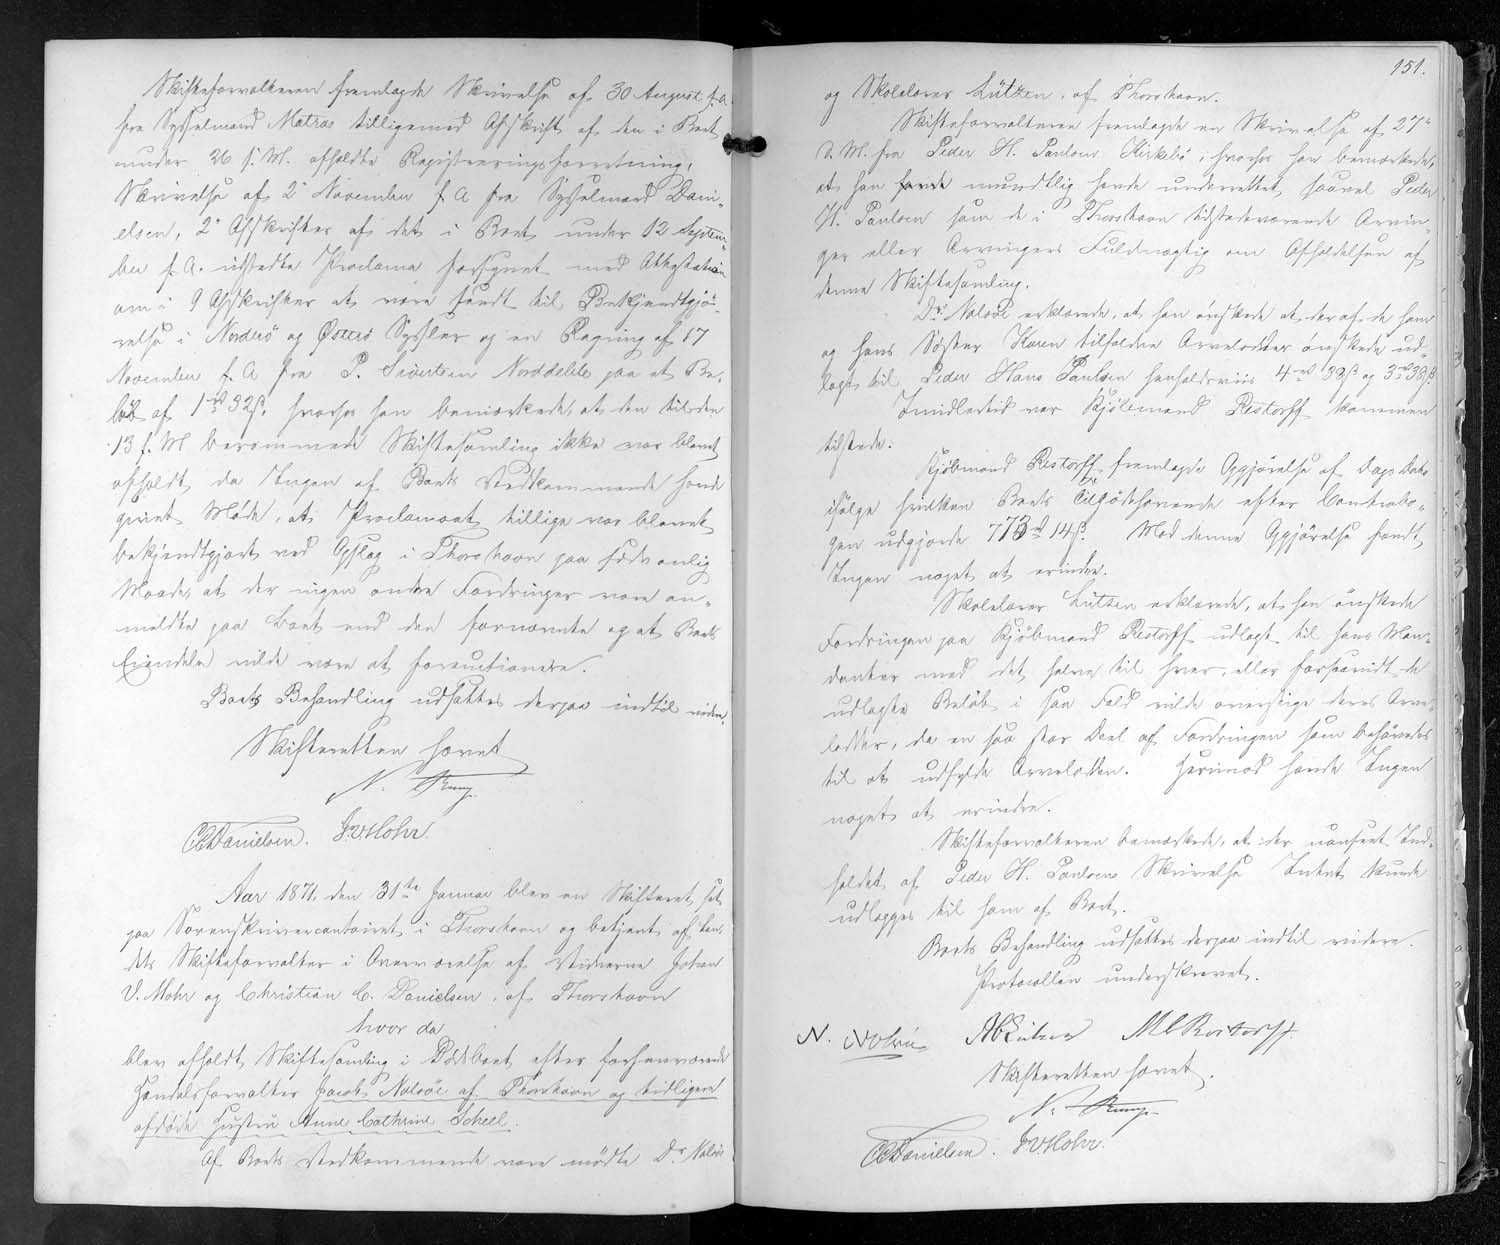 Skifteforvalteren fremlagde Skrivelse af 30 August f. A.
fra Sysselmand Matras tilligemed Afskrift af den i Boet
under 26 s. M. afholdte Registreringsforretning,
Skrivelse af 2 November f. A fra Sysselmand Dani-
elsen, 2 Afskrifter af det i Boet under 12 Septem-
ber f. A. udstedte Proclama forsynet med Attestation
om i 9 Afskrifter at være sendt til Bekjendtgjø-
relse i Norderø og Østerø Sysler og en Regning af 17
November f. A fra P. Sivertsen Norddeble paa et Be-
løb af 1 rd 32 ß, hvorhos han bemærkede, at den til den
13 f. M berammede Skiftesamling ikke var blevet
afholdt, da Ingen af Boets Vedkommende havde
givet Møde, at Proclamaet tillige var blevet
bekjendtgjort ved Opslag i Thorshavn paa sædvanlig
Maade, at der ingen andre Fordringer vare an-
meldte paa Boet end den fornævnte og at Boets
Eiendele vilde være at forauctionere.
Boets Behandling udsattes derpaa indtil videre.
Skifteretten hævet
N.
CCDanielsen. J.VMohr
Aar 1871, den 31te Januar blev en Skifteret sat
paa Sorenskrivercontoiret i Thorshavn og betjent af Lan-
dets Skifteforvalter i Overværelse af Vidnerne Johan
V. Mohr og Christian C. Danielsen, af Thorshavn
hvor da
blev afholdt Skiftesamling i Dødsboet efter forhenværende
Handelsforvalter Jacob Nolsøe af Thorshavn og tidligere
afdøde Hustru Anne Cathrine Scheel.
Af Boets Vedkommende vare mødte Dr. Nolsøe
151.
og Skolelærer Lützen, af Thorshavn.
Skifteforvalteren fremlagde en Skrivelse af 27
d. M. fra Peder H. Paulsen Kirkebø, hvorhos han bemærkede,
at han havde mundtlig havde underrettet saavel Peder
H. Paulsen som de i Thorshavn tilstedeværende Arvin-
ger eller Arvingers Fuldmægtig om Afholdelsen af
denne Skiftesamling.
Dr. Nolsøe erklærede, at han ønskede at der af de ham
og hans Søster Karen tilfaldne Arvelodder ønskede ud-
lagt til Peder Hans Paulsen henholdsviis 4 rd 33 ß og 3 rd 38 ß.
Imidlertid var Kjøbmand Restorff kommen
tilstede.
Kjøbmand Restorff fremlagde Opgjørelse af Dags Dato
ifølge hvilken Boets Tilgodehavende efter Contrabo-
gen udgjorde 773 rd 14 ß. Mod denne Opgjørelse fandt
Ingen noget at erindre.
Skolelærer Lützen erklærede, at han ønskede
Fordringen paa Kjøbmand Restorff udlagt til hans Man-
danter med det halve til hver, eller forsaavidt de
udlagte Beløb i saa Fald vilde overstige deres Arve-
lodder, da en saa stor Deel af Fordringen som behøvedes
til at udfylde Arvelodden. Herimod havde Ingen
noget at erindre.
Skifteforvalteren bemærkede, at der uanseet Ind-
holdet af Peder H. Paulsens Skrivelse Intet kunde
udlægges til ham af Boet.
Boets Behandling udsattes derpaa indtil videre.
Protocollen underskrevet.
N. Nolsøe ABLützen MCRestorff.
Skifteretten hævet.
N.
CCDanielsen. J.VMohr.